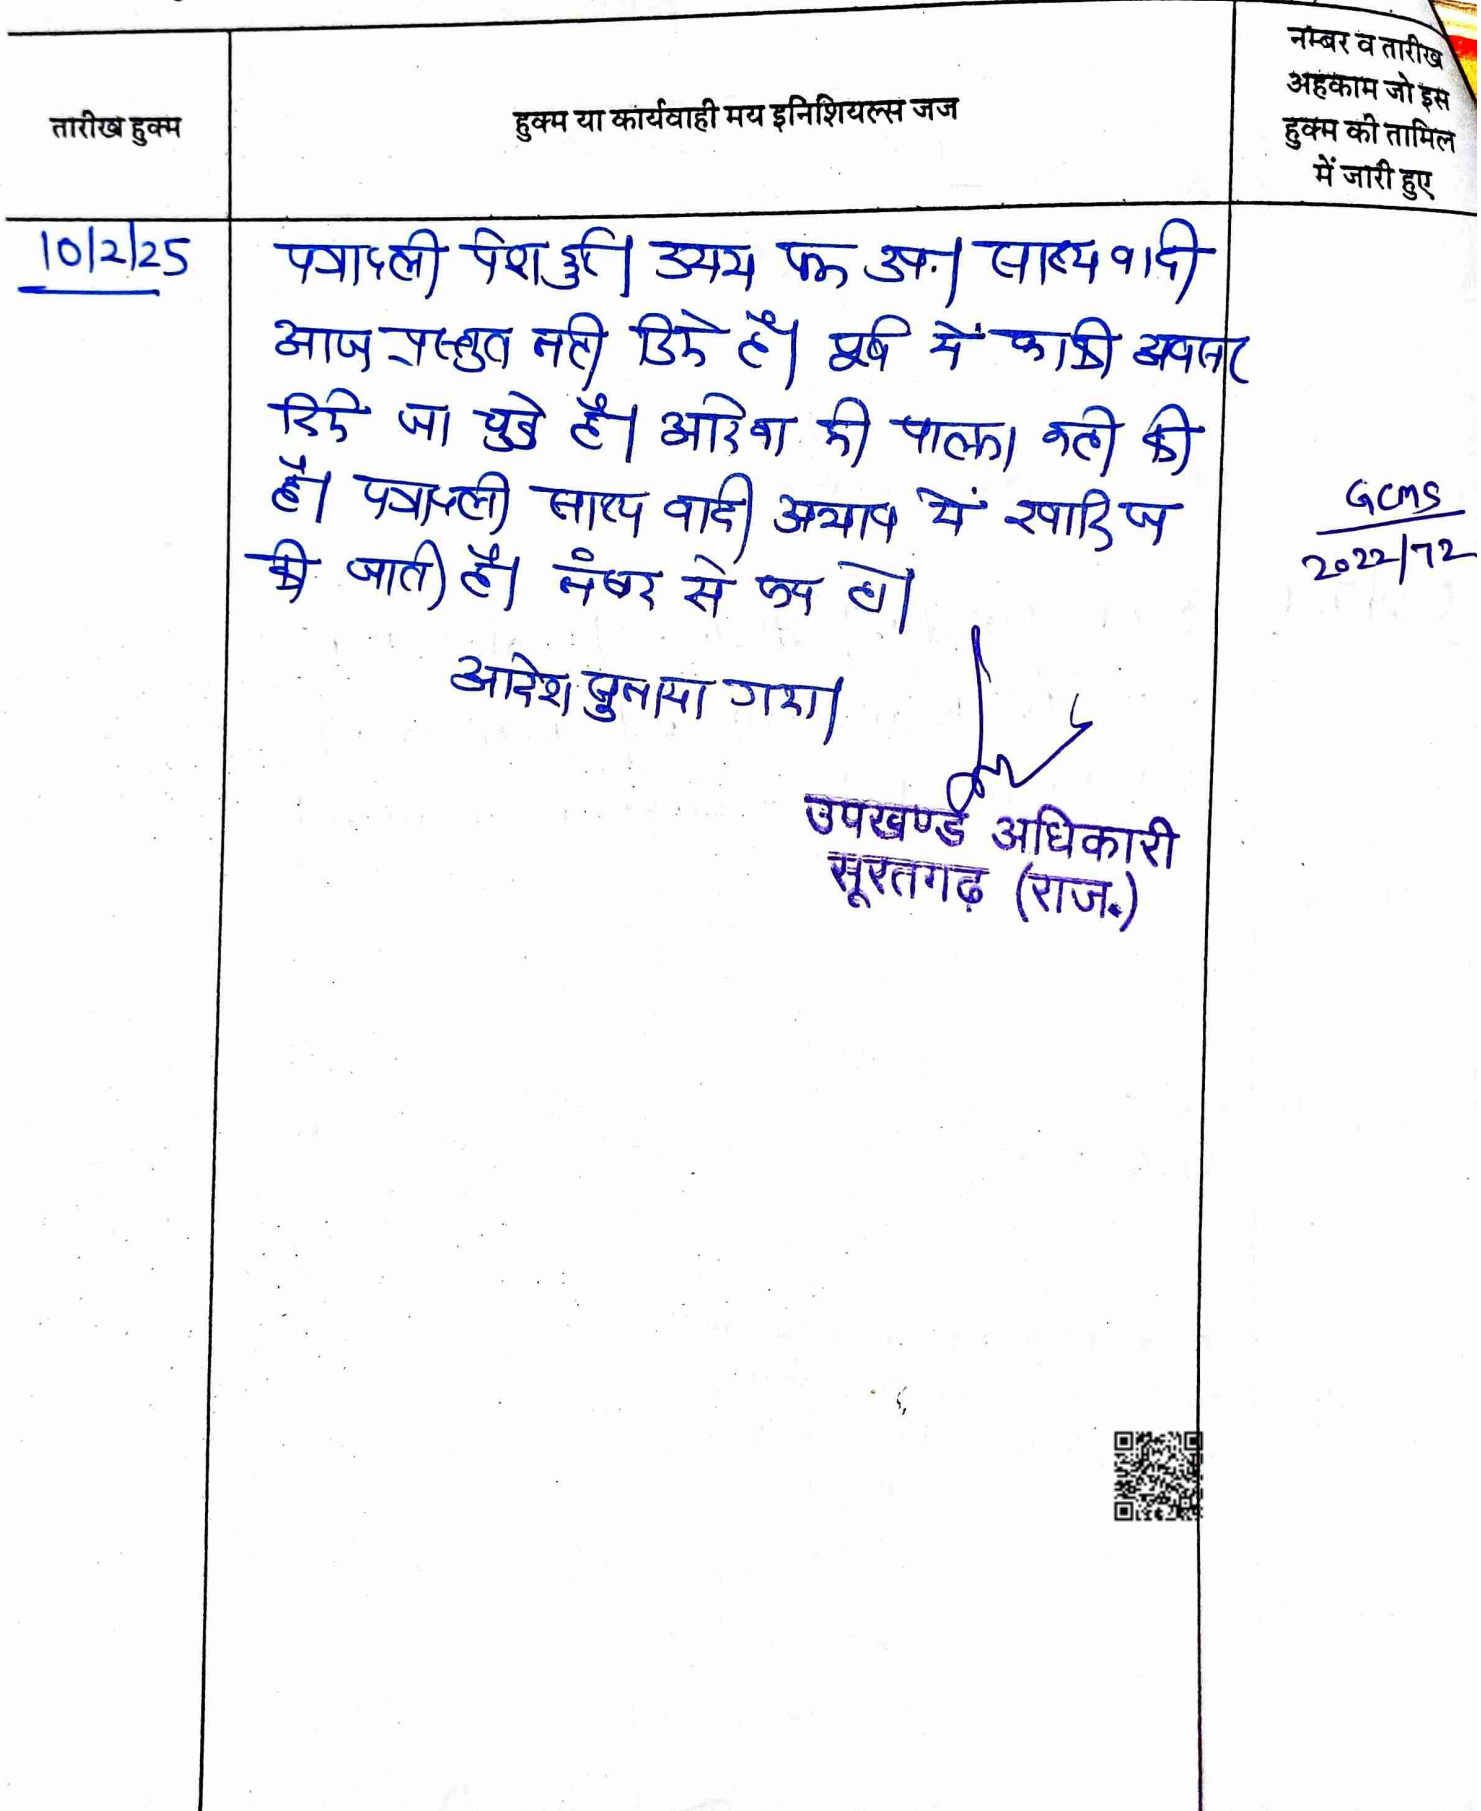 तारीख हुक्म
हुक्म या कार्यवाही मय इनिशियल्स जज
नम्बर व तारीख
अहकाम जो इस
हुक्म की तामिल
में जारी हुए
10/2/25
पत्रावली पेश हुई। उभय पक्ष उप.। साक्ष्य वादी
आज प्रस्तुत नही किए है। पूर्व में काफी अवसर
दिए जा चुके है। आदेश की पालना नही की
है। पत्रावली साक्ष्य वादी अभाव में खारिज
की जाती है। नंबर से कम हो।
आदेश सुनाया गया।
GCMS
2022/72
उपखण्ड अधिकारी
सूरतगढ़ (राज.)